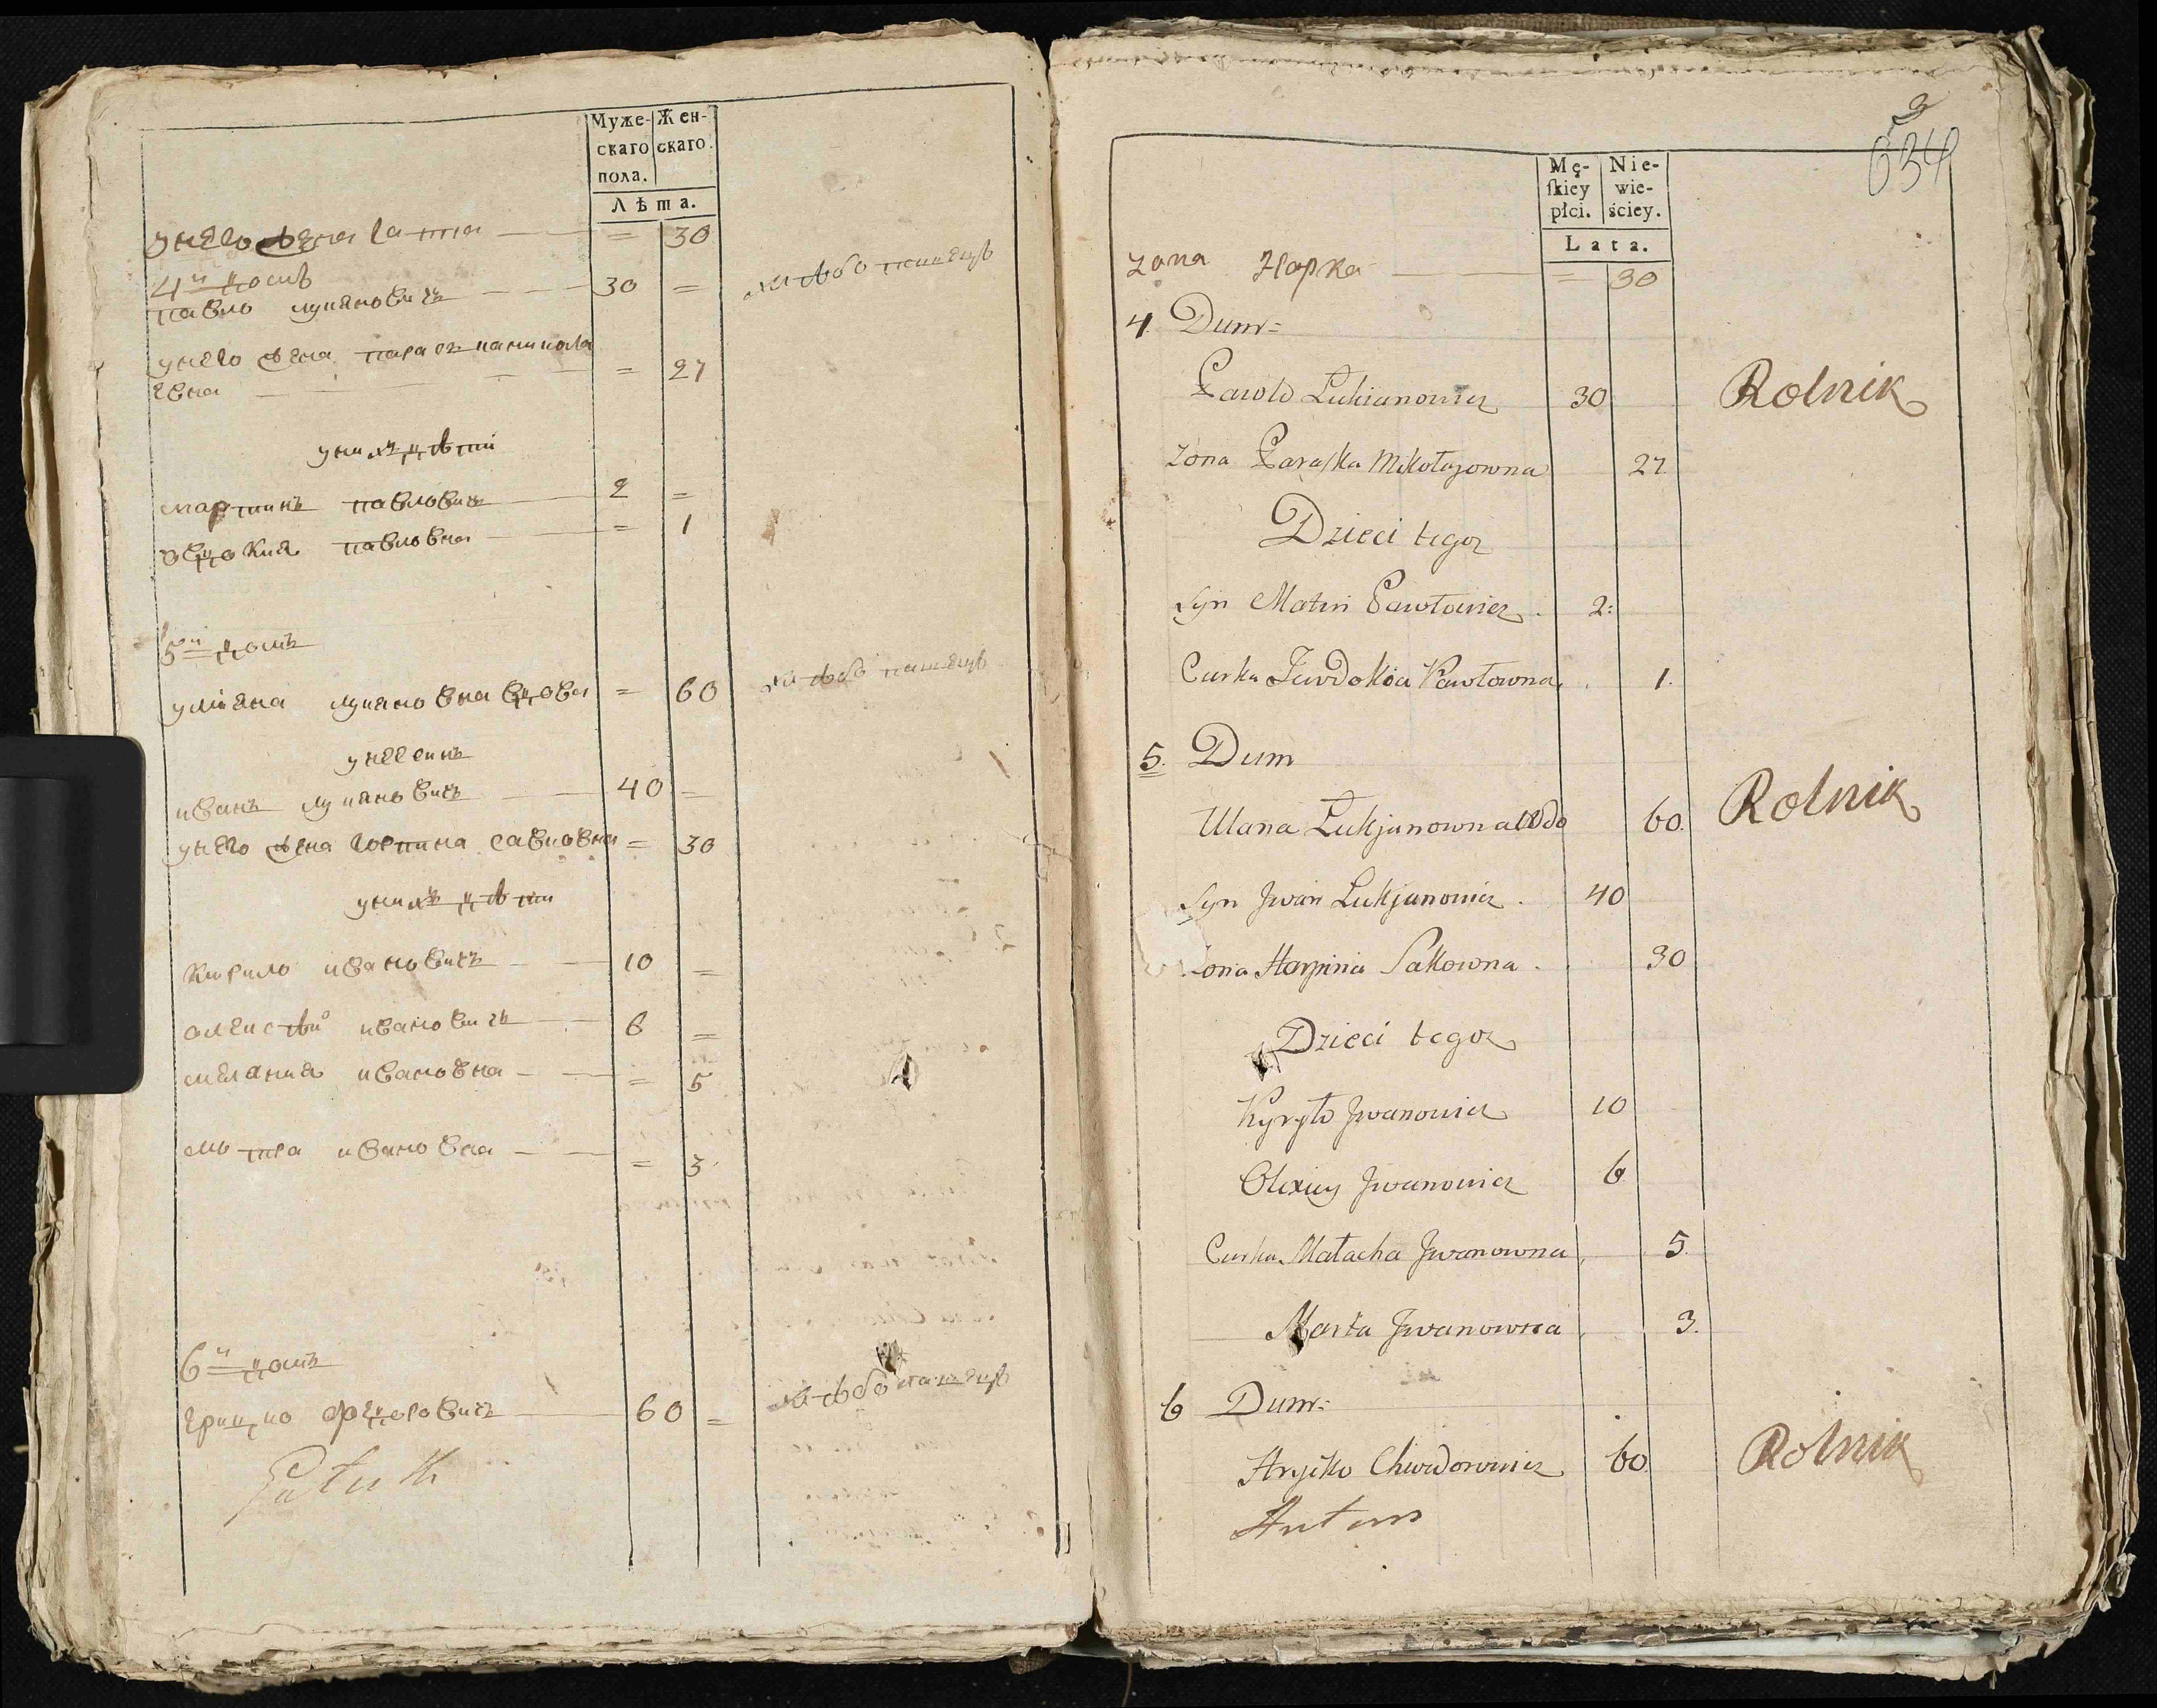 Муже-
скаго
пола.
Жен-
скаго.
Лѣта.
унего жена — = 30
4й домъ
павло лукяновичъ — 30 = хлѣбопашецъ
унего жена параскя никола
евна — = 27
унихъ дѣти
мартинъ павловичъ — 2 =
явдокия павловна — = 1
5й домъ
уляна лукяновна вдова = 60 хлѣбопашецъ
унее синъ
иванъ лукяновичъ — 40 =
унего жена горпина савковна = 30
унихъ дѣти
кирило ивановичъ — 10 =
олексѣй ивановичъ — 6 =
мелания ивановна — = 5
мотра ивановна — = 3
6й домъ
грицко федоровичъ — 60 = хлѣбопашецъ
3
634
Mę-
skiey
płci.
Nie-
wie-
ściey.
Lata.
Zona — = 30
4. Dum=
Pawło Lukianowicz 30 Rolnik
Zona Paraska Mikołajowna 27.
Dzieci tegoz
Syn Matwi Pawłowicz. 2:
Curka Jewdokia Pawłowna. 1.
5. Dum
Ulana Lukjanowna Wdo 60. Rolnik
Syn Jwan Lukjanowicz. 40
Zona Harpina Sakowna. 30
Dzieci tegoz
Kyryło Jwanowicz 10
Olexiey Jwanowicz 6
Curka Małacha Jwanowna, 5.
Marta Jwanowna, 3.
6 Dum=
Hryćko Chwedorowicz 60. Rolnik